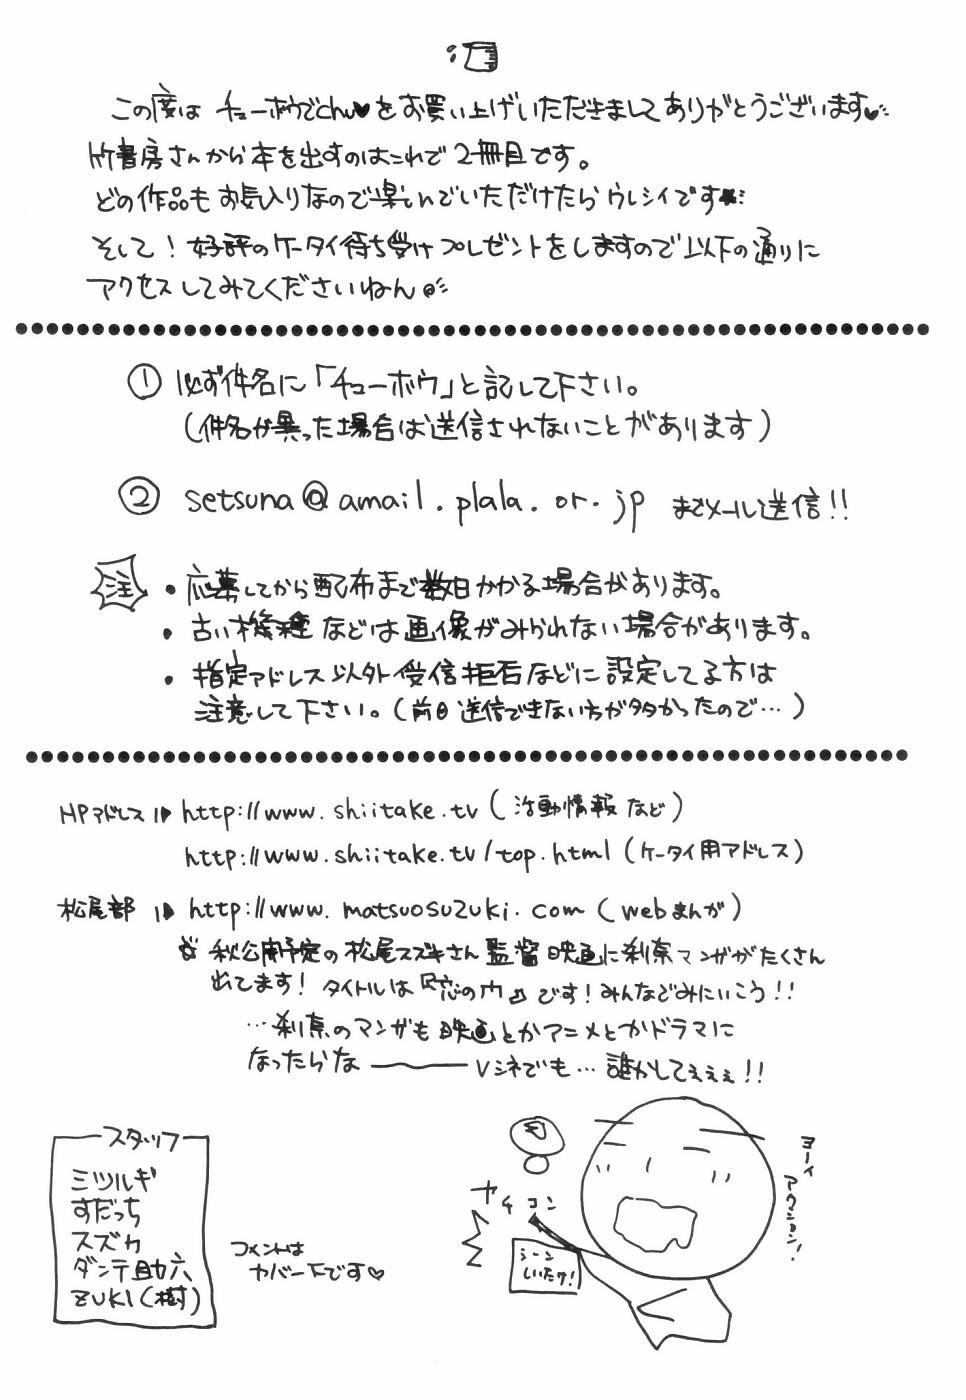 この度は チューボウでchu♥をお買い上げいただきましてありがとうございます♥
竹書房さんから本を出すのはこれで2冊目です。
どの作品もお気入りなので楽しんでいただけたらウレシイです★
そして！好評のケータイ待ち受けプレゼントをしますので以下の通りに
アクセスしてみてくださいねん
① 必ず件名に「チューボウ」と記して下さい。
(件名が異った場合は送信されないことがあります)
② setsuna@amail.plala.or.jp までメール送信!!
注 ・応募してから配布まで数日かかる場合があります。
・古い機種などは画像がみられない場合があります。
・指定アドレス以外受信拒否などに設定してる方は
注意して下さい。(前回送信できない方が多かったので…)
HPアドレス http://www.shiitake.tv (活動情報など)
http://www.shiitake.tv/top.html (ケータイ用アドレス)
松尾部 http://www.matsuosuzuki.com (webまんが)
秋公開予定の松尾スズキさん監督映画に刹奈マンガがたくさん
出てます！タイトルは『恋の門』です！みんなでみにいこう!!
…刹奈のマンガも映画とかアニメとかドラマに
なったらな――Vシネでも…誰かしてぇぇぇ!!
スタッフ
ミツルギ
すだっち
スズカ
ダンテ助六
ZUKI(樹)
コメントは
カバー下です♡
カチコン
シーン
しいたけ！
ヨーイ
アクション！